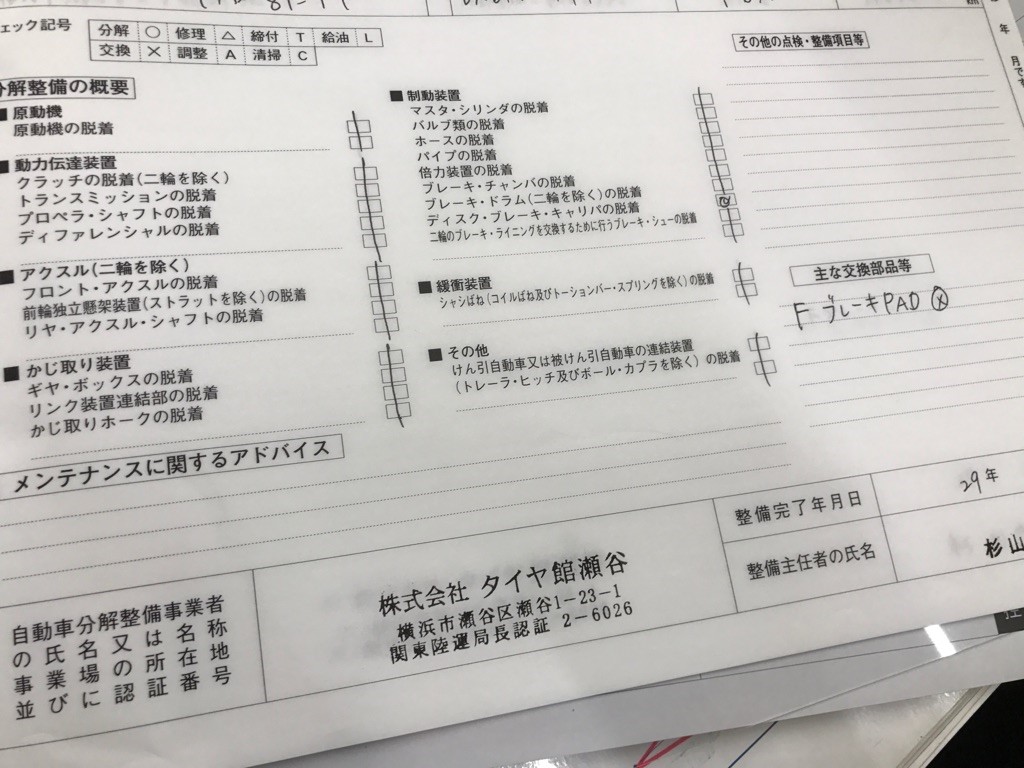 ェック記号
分解 ○ 修理 △ 締付 T 給油 L
交換 × 調整 A 清掃 C
分解整備の概要
■ 原動機
原動機の脱着
■ 動力伝達装置
クラッチの脱着(二輪を除く)
トランスミッションの脱着
プロペラ・シャフトの脱着
ディファレンシャルの脱着
■ アクスル(二輪を除く)
フロント・アクスルの脱着
前輪独立懸架装置(ストラットを除く)の脱着
リヤ・アクスル・シャフトの脱着
■ かじ取り装置
ギヤ・ボックスの脱着
リンク装置連結部の脱着
かじ取りホークの脱着
■ 制動装置
マスタ・シリンダの脱着
バルブ類の脱着
ホースの脱着
パイプの脱着
倍力装置の脱着
ブレーキ・チャンバの脱着
ブレーキ・ドラム(二輪を除く)の脱着
ディスク・ブレーキ・キャリパの脱着
二輪のブレーキ・ライニングを交換するために行うブレーキ・シューの脱着
■ 緩衝装置
シャシばね(コイルばね及びトーションバー・スプリングを除く)の脱着
■ その他
けん引自動車又は被けん引自動車の連結装置
(トレーラ・ヒッチ及びボール・カプラを除く)の脱着
その他の点検・整備項目等
年
月です
主な交換部品等
F ブレーキPAD ⓧ
メンテナンスに関するアドバイス
自動車分解整備事業者
の氏名又は名称
事業場の所在地
並びに認証番号
株式会社 タイヤ館瀬谷
横浜市瀬谷区瀬谷1-23-1
関東陸運局長認証 2-6026
整備完了年月日
29年
整備主任者の氏名
杉山